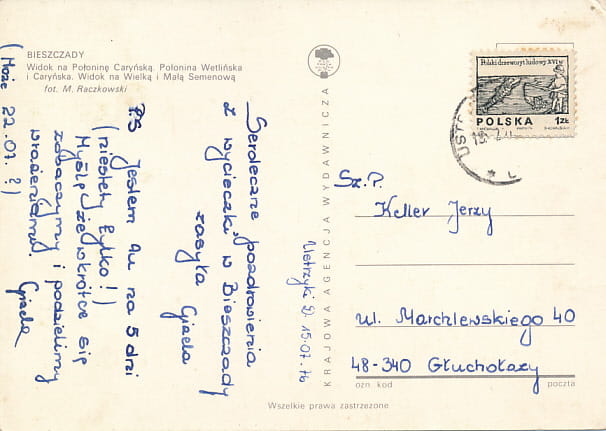 BIESZCZADY
Widok na Połoninę Caryńską. Połonina Wetlińska
i Caryńska. Widok na Wielką i Małą Semenową
fot. M. Raczkowski
Serdeczne pozdrowienia
z wycieczki w Bieszczady
zasyła Gizela
PS Jestem tu na 5 dni
(niestety tylko!)
Myślę że wkrótce się
zobaczymy i podzielimy
wrażeniami. Gizela
(Może 22.07.?)
Ustrzyki D. 15.07.76
KRAJOWA AGENCJA WYDAWNICZA
Polski drzeworyt ludowy XVI w.
POLSKA 1ZŁ
Sz.P.
Keller Jerzy
ul. Marchlewskiego 40
48-340 Głuchołazy
ozn. kod poczta
Wszelkie prawa zastrzeżone